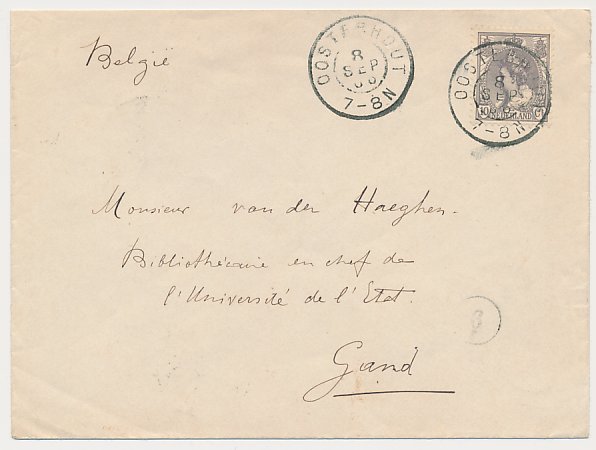 België
OOSTERHOUT
8
SEP
7-8N
OOSTERH
8
SEP
7-8N
10 NEDERLAND Ct
Monsieur van der Haeghen.
Bibliothécaire en chef de
l'Université de l'Etat.
6
Gand